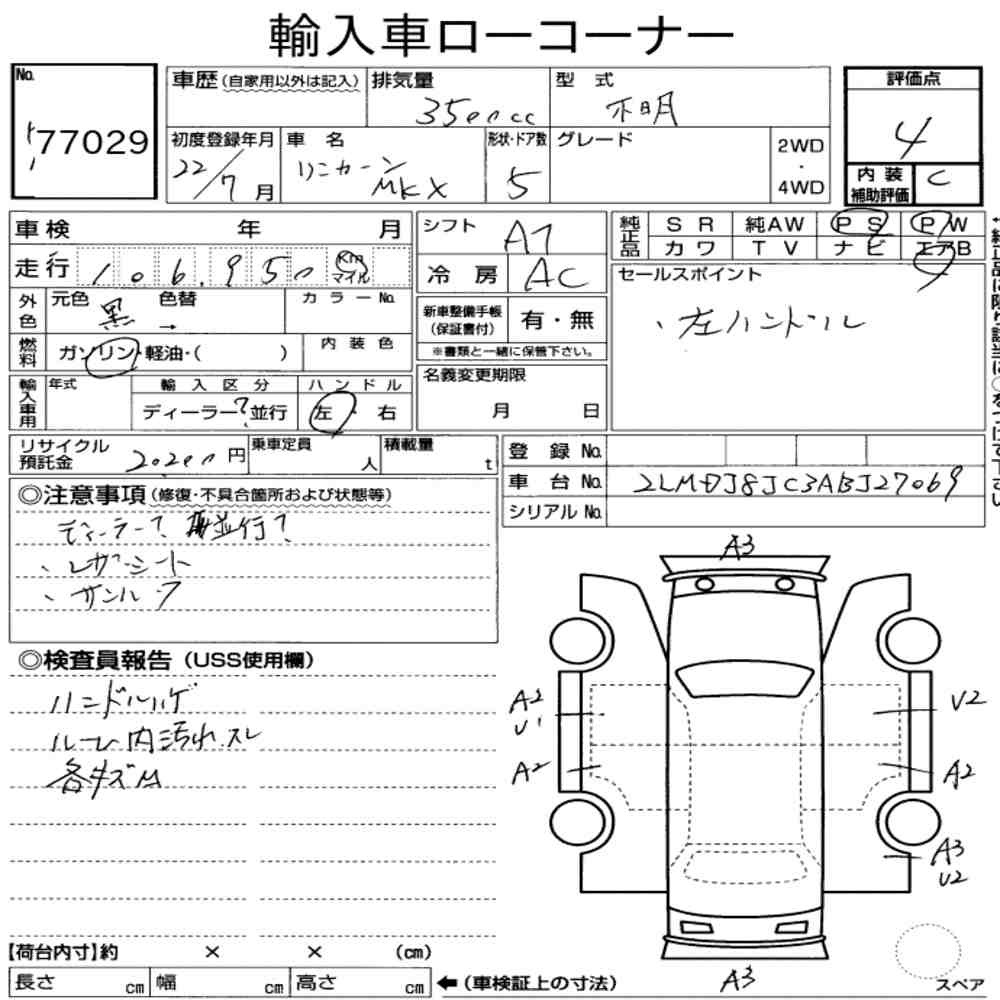 輸入車ローコーナー
No.
77029
車歴(自家用以外は記入)
排気量
3500cc
型式
不明
評価点
4
初度登録年月
22/7月
車名
リンカーン
MKX
形状・ドア数
5
グレード
2WD
・
4WD
内装
補助評価
C
車検 年 月
走行
106,950
Km
マイル
外色
元色
黒
色替
→
カラーNo.
燃料
ガソリン・軽油・( )
内装色
輸入車用
年式
輸入区分
ディーラー?並行
ハンドル
左・右
シフト
AT
冷房
AC
新車整備手帳
(保証書付)
有・無
※書類と一緒に保管下さい。
名義変更期限
月 日
純正品
SR 純AW PS PW
カワ TV ナビ エアB
セールスポイント
、左ハンドル
リサイクル
預託金
円
乗車定員
人
積載量
t
登録No.
車台No.
2LMDJ8JC3ABJ27069
シリアルNo.
◎注意事項(修復・不具合箇所および状態等)
ディーラー?並行?
、レザーシート
、サンルーフ
◎検査員報告(USS使用欄)
ハンドルハゲ
ルーム内汚れスレ
各キズU
A3
A2
U1
A2
U2
A2
A3
U2
A3
【荷台内寸】約 × × (cm)
長さ cm 幅 cm 高さ cm
←(車検証上の寸法)
スペア